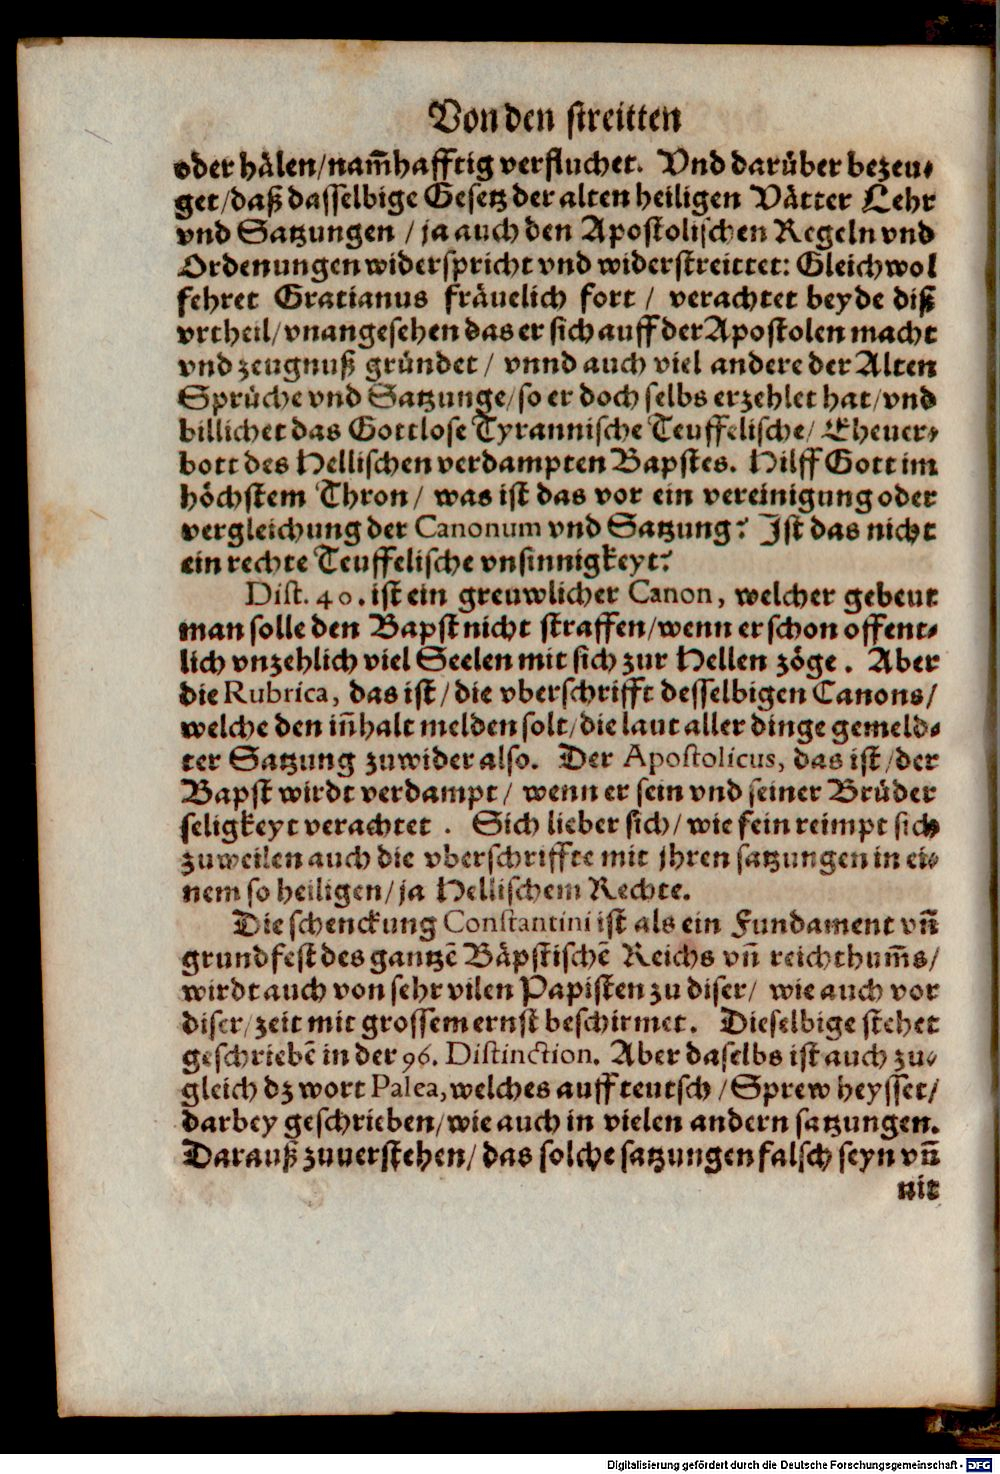 Von den streitten
oder hälen/nam̃hafftig verfluchet. Vnd darüber bezeu-
get/daß dasselbige Gesetz der alten heiligen Vätter Lehr
vnd Satzungen / ja auch den Apostolischen Regeln vnd
Ordenungen widerspricht vnd widerstreittet: Gleichwol
fehret Gratianus fräuelich fort / verachtet beyde diß
vrtheil/vnangesehen das er sich auff der Apostolen macht
vnd zeugnuß gründet / vnnd auch viel andere der Alten
Sprüche vnd Satzunge/so er doch selbs erzehlet hat/vnd
billichet das Gottlose Tyrannische Teuffelische/ Eheuer-
bott des Hellischen verdampten Bapstes. Hilff Gott im
höchstem Thron/ was ist das vor ein vereinigung oder
vergleichung der Canonum vnd Satzung? Ist das nicht
ein rechte Teuffelische vnsinnigkeyt?
Dist. 40. ist ein greuwlicher Canon, welcher gebeut
man solle den Bapst nicht straffen/wenn er schon offent-
lich vnzehlich viel Seelen mit sich zur Hellen zöge. Aber
die Rubrica, das ist/die vberschrifft desselbigen Canons/
welche den iñhalt melden solt/die laut aller dinge gemeld-
ter Satzung zuwider also. Der Apostolicus, das ist/der
Bapst wirdt verdampt/ wenn er sein vnd seiner Brüder
seligkeyt verachtet . Sich lieber sich/ wie fein reimpt sich
zuweilen auch die vberschriffte mit jhren satzungen in ei-
nem so heiligen/ja Hellischem Rechte.
Die schenckung Constantini ist als ein Fundament vñ
grundfest des gantzẽ Bäpstischẽ Reichs vñ reichthum̃s/
wirdt auch von sehr vilen Papisten zu diser/ wie auch vor
diser/zeit mit grossem ernst beschirmet. Dieselbige stehet
geschriebẽ in der 96. Distinction. Aber daselbs ist auch zu-
gleich dz wort Palea, welches auff teutsch /Sprew heysset/
darbey geschrieben/wie auch in vielen andern satzungen.
Darauß zuuerstehen/ das solche satzungen falsch seyn vñ
nit
Digitalisierung gefördert durch die Deutsche Forschungsgemeinschaft - DFG